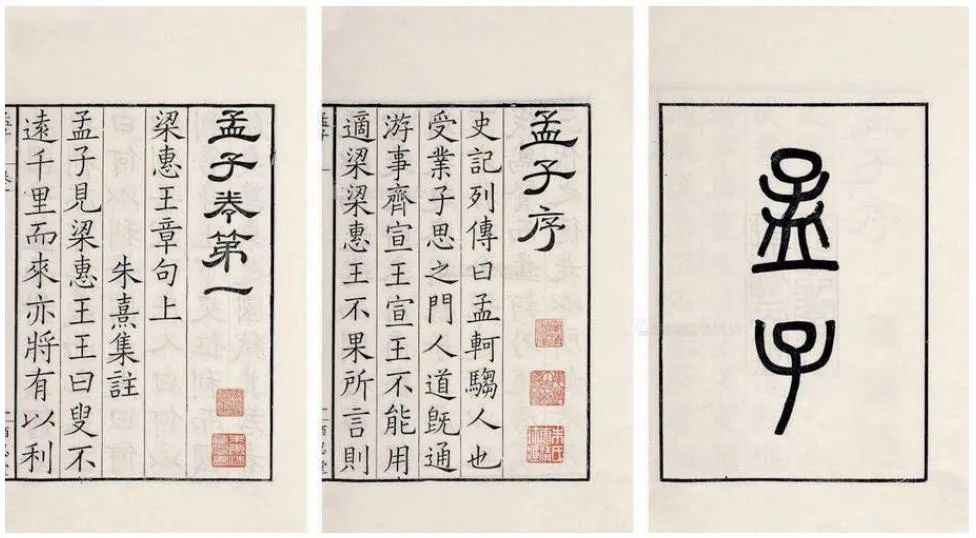 孟子
孟子序
史記列傳曰孟軻騶人也
受業子思之門人道旣通
游事齊宣王宣王不能用
適梁梁惠王不果所言則
孟子卷第一
梁惠王章句上
朱熹集註
孟子見梁惠王王曰叟不
遠千里而來亦將有以利